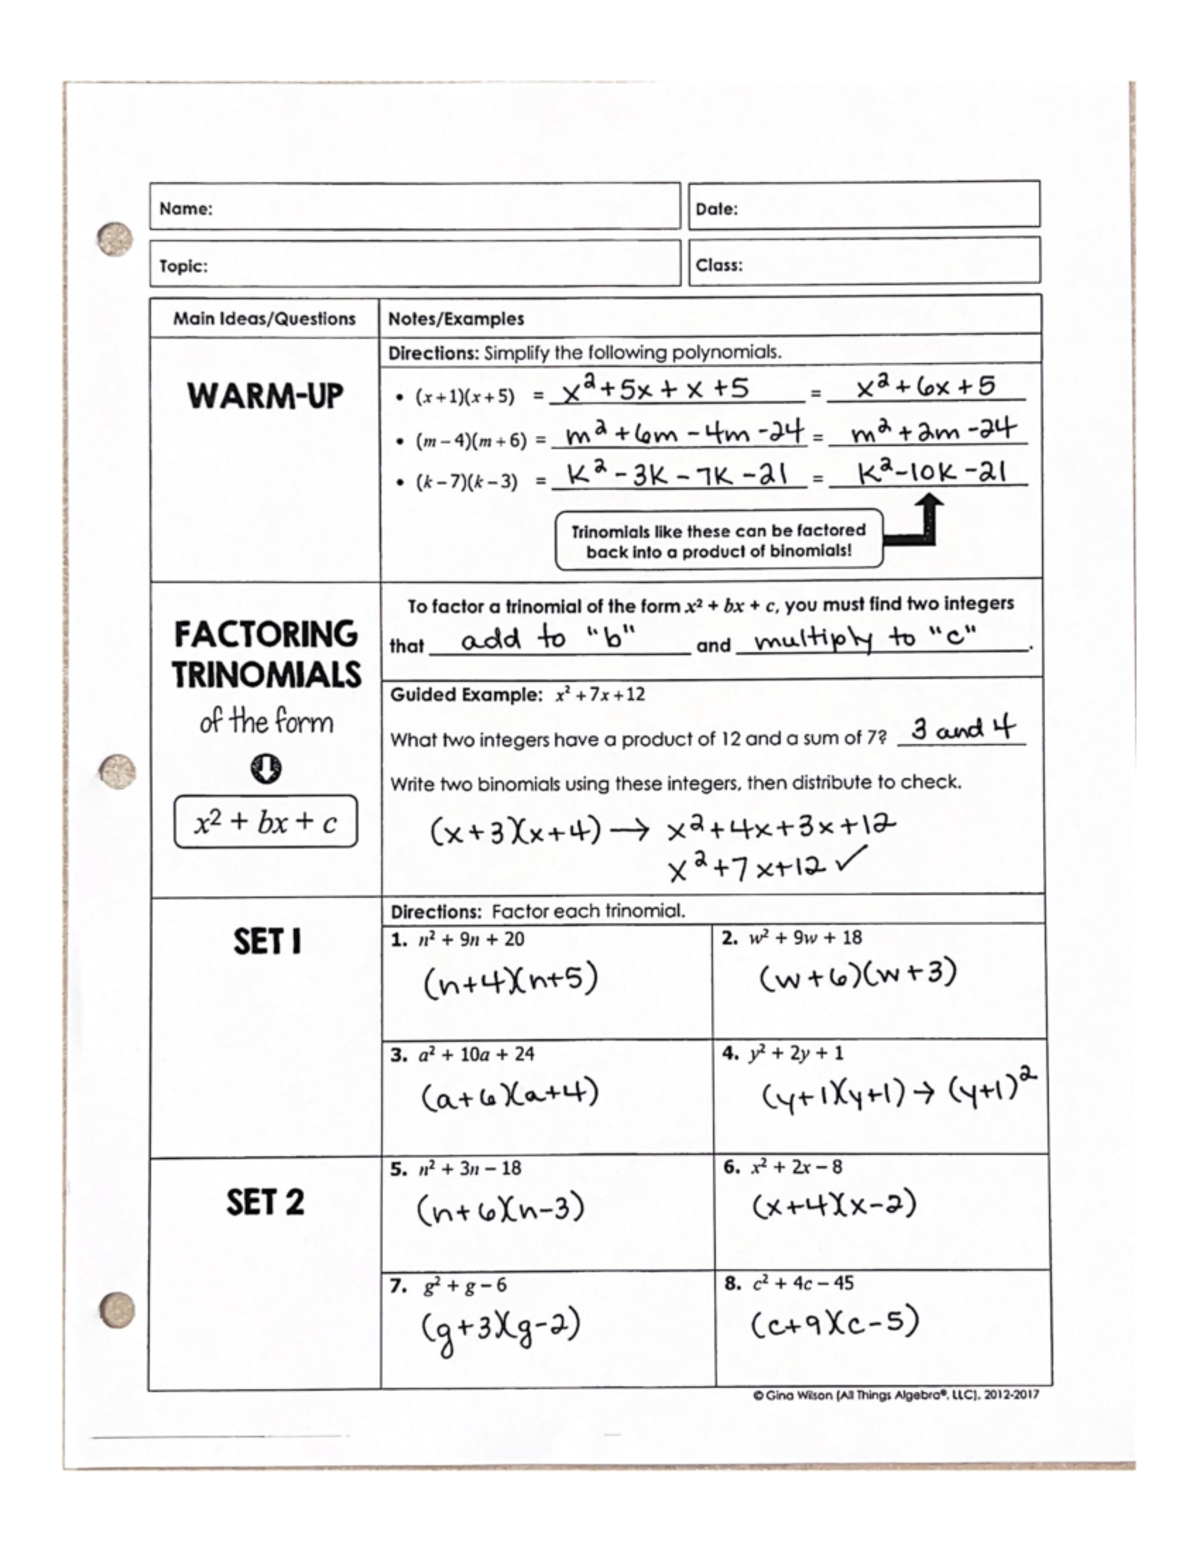 Name:
Date:
Topic:
Class:
Main Ideas/Questions
Notes/Examples
WARM-UP
Directions: Simplify the following polynomials.
• (x + 1)(x + 5) = x² + 5x + x + 5 = x² + 6x + 5
• (m – 4)(m + 6) = m² + 6m – 4m – 24 = m² + 2m – 24
• (k – 7)(k – 3) = k² – 3k – 7k – 21 = k² – 10k – 21
Trinomials like these can be factored
back into a product of binomials!
FACTORING
TRINOMIALS
of the form
x² + bx + c
To factor a trinomial of the form x² + bx + c, you must find two integers
that add to "b" and multiply to "c".
Guided Example: x² + 7x + 12
What two integers have a product of 12 and a sum of 7? 3 and 4
Write two binomials using these integers, then distribute to check.
(x+3)(x+4) → x²+4x+3x+12
x²+7x+12 ✓
SET 1
Directions: Factor each trinomial.
1. n² + 9n + 20
(n+4)(n+5)
2. w² + 9w + 18
(w+6)(w+3)
3. a² + 10a + 24
(a+6)(a+4)
4. y² + 2y + 1
(y+1)(y+1) → (y+1)²
SET 2
5. n² + 3n – 18
(n+6)(n–3)
6. x² + 2x – 8
(x+4)(x–2)
7. g² + g – 6
(g+3)(g–2)
8. c² + 4c – 45
(c+9)(c–5)
© Gina Wilson (All Things Algebra®, LLC), 2012-2017